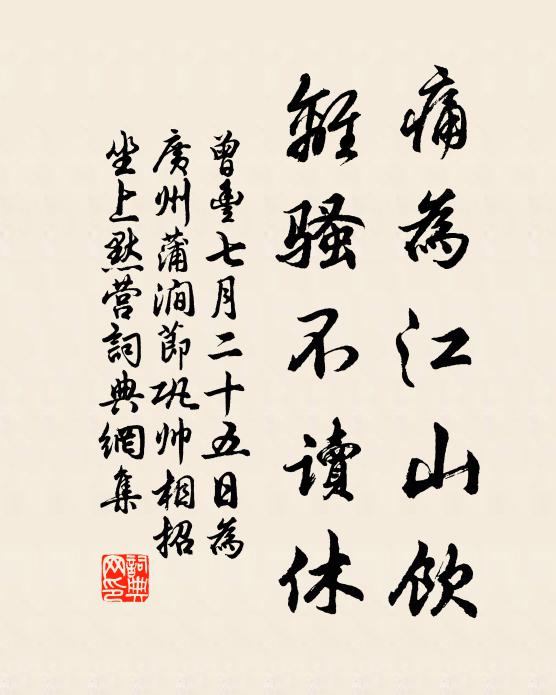 痛為江山飲
離騷不讀休
曾豊七月二十五日為
廣州蒲澗節巩帅相招
坐上默营詞典網集
詞典网印